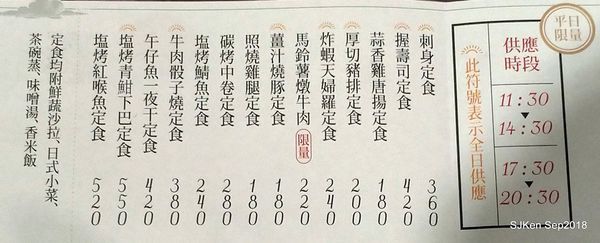 平日
限量
供應
時段
11:30
14:30
17:30
20:30
此符號表示全日供應
刺身定食 360
握壽司定食 420
蒜香雞唐揚定食 180
厚切豬排定食 200
炸蝦天婦羅定食 240
馬鈴薯燉牛肉 限量 220
薑汁燒豚定食 180
照燒雞腿定食 180
碳烤中卷定食 280
塩烤鯖魚定食 240
牛肉骰子燒定食 380
午仔魚一夜干定食 420
塩烤青魽下巴定食 550
塩烤紅喉魚定食 520
定食均附鮮蔬沙拉、日式小菜、
茶碗蒸、味噌湯、香米飯
SJKen Sep2018